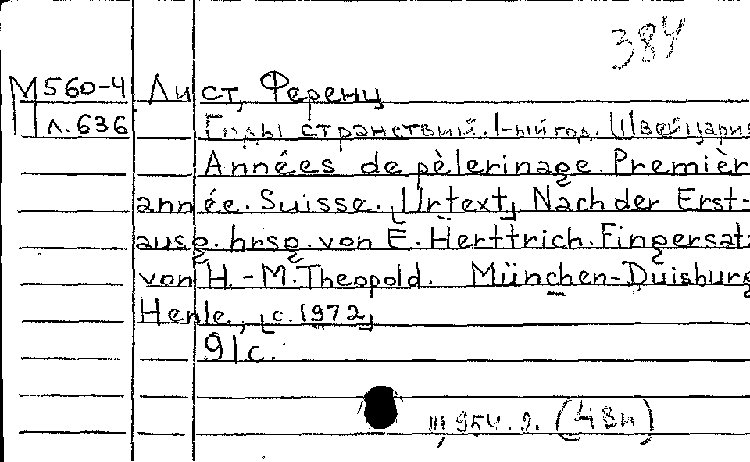 384
М560-4 Лист, Ференц
Л.636 Годы странствий. 1-ый год. Швейцария
Années de pèlerinage. Premièr
année. Suisse. [Urtext] Nach der Erst-
ausg. hrsg. von E. Herttrich. Fingersatz
von H.-M. Theopold. München-Duisburg
Henle, [c. 1972]
91 c.